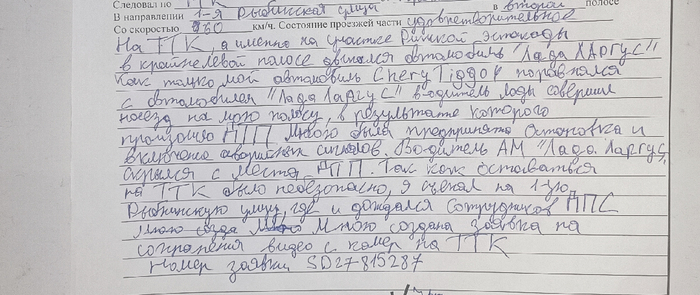 Следовал по ТТК
В направлении 1-я Рыбинская улица в второй полосе
Со скоростью км/ч. Состояние проезжей части удовлетворительное
На ТТК, а именно на участке Рижской эстокады
в крайнелевой полосе двигался автомобиль "Лада ЛАРГУС"
Как только мой автомобиль Chery Tiggo поравнялся
с автомобилем "Лада ЛаРгус" водитель лады совершил
наезд на мою полосу, в результате которого
произошло ДТП Мною была предпринята Остановка и
включена аварийная сигналов. Водитель АМ "Лада Ларгус"
скрылся с места ДТП. Так как оставаться
на ТТК было небезопасно, я съехал на 1-ую
Рыбинскую улицу, где и дождался сотрудников ДПС
Мною созда Мною создана заявка на
сохранения видео с камер на ТТК
Номер заявки SD27-815287